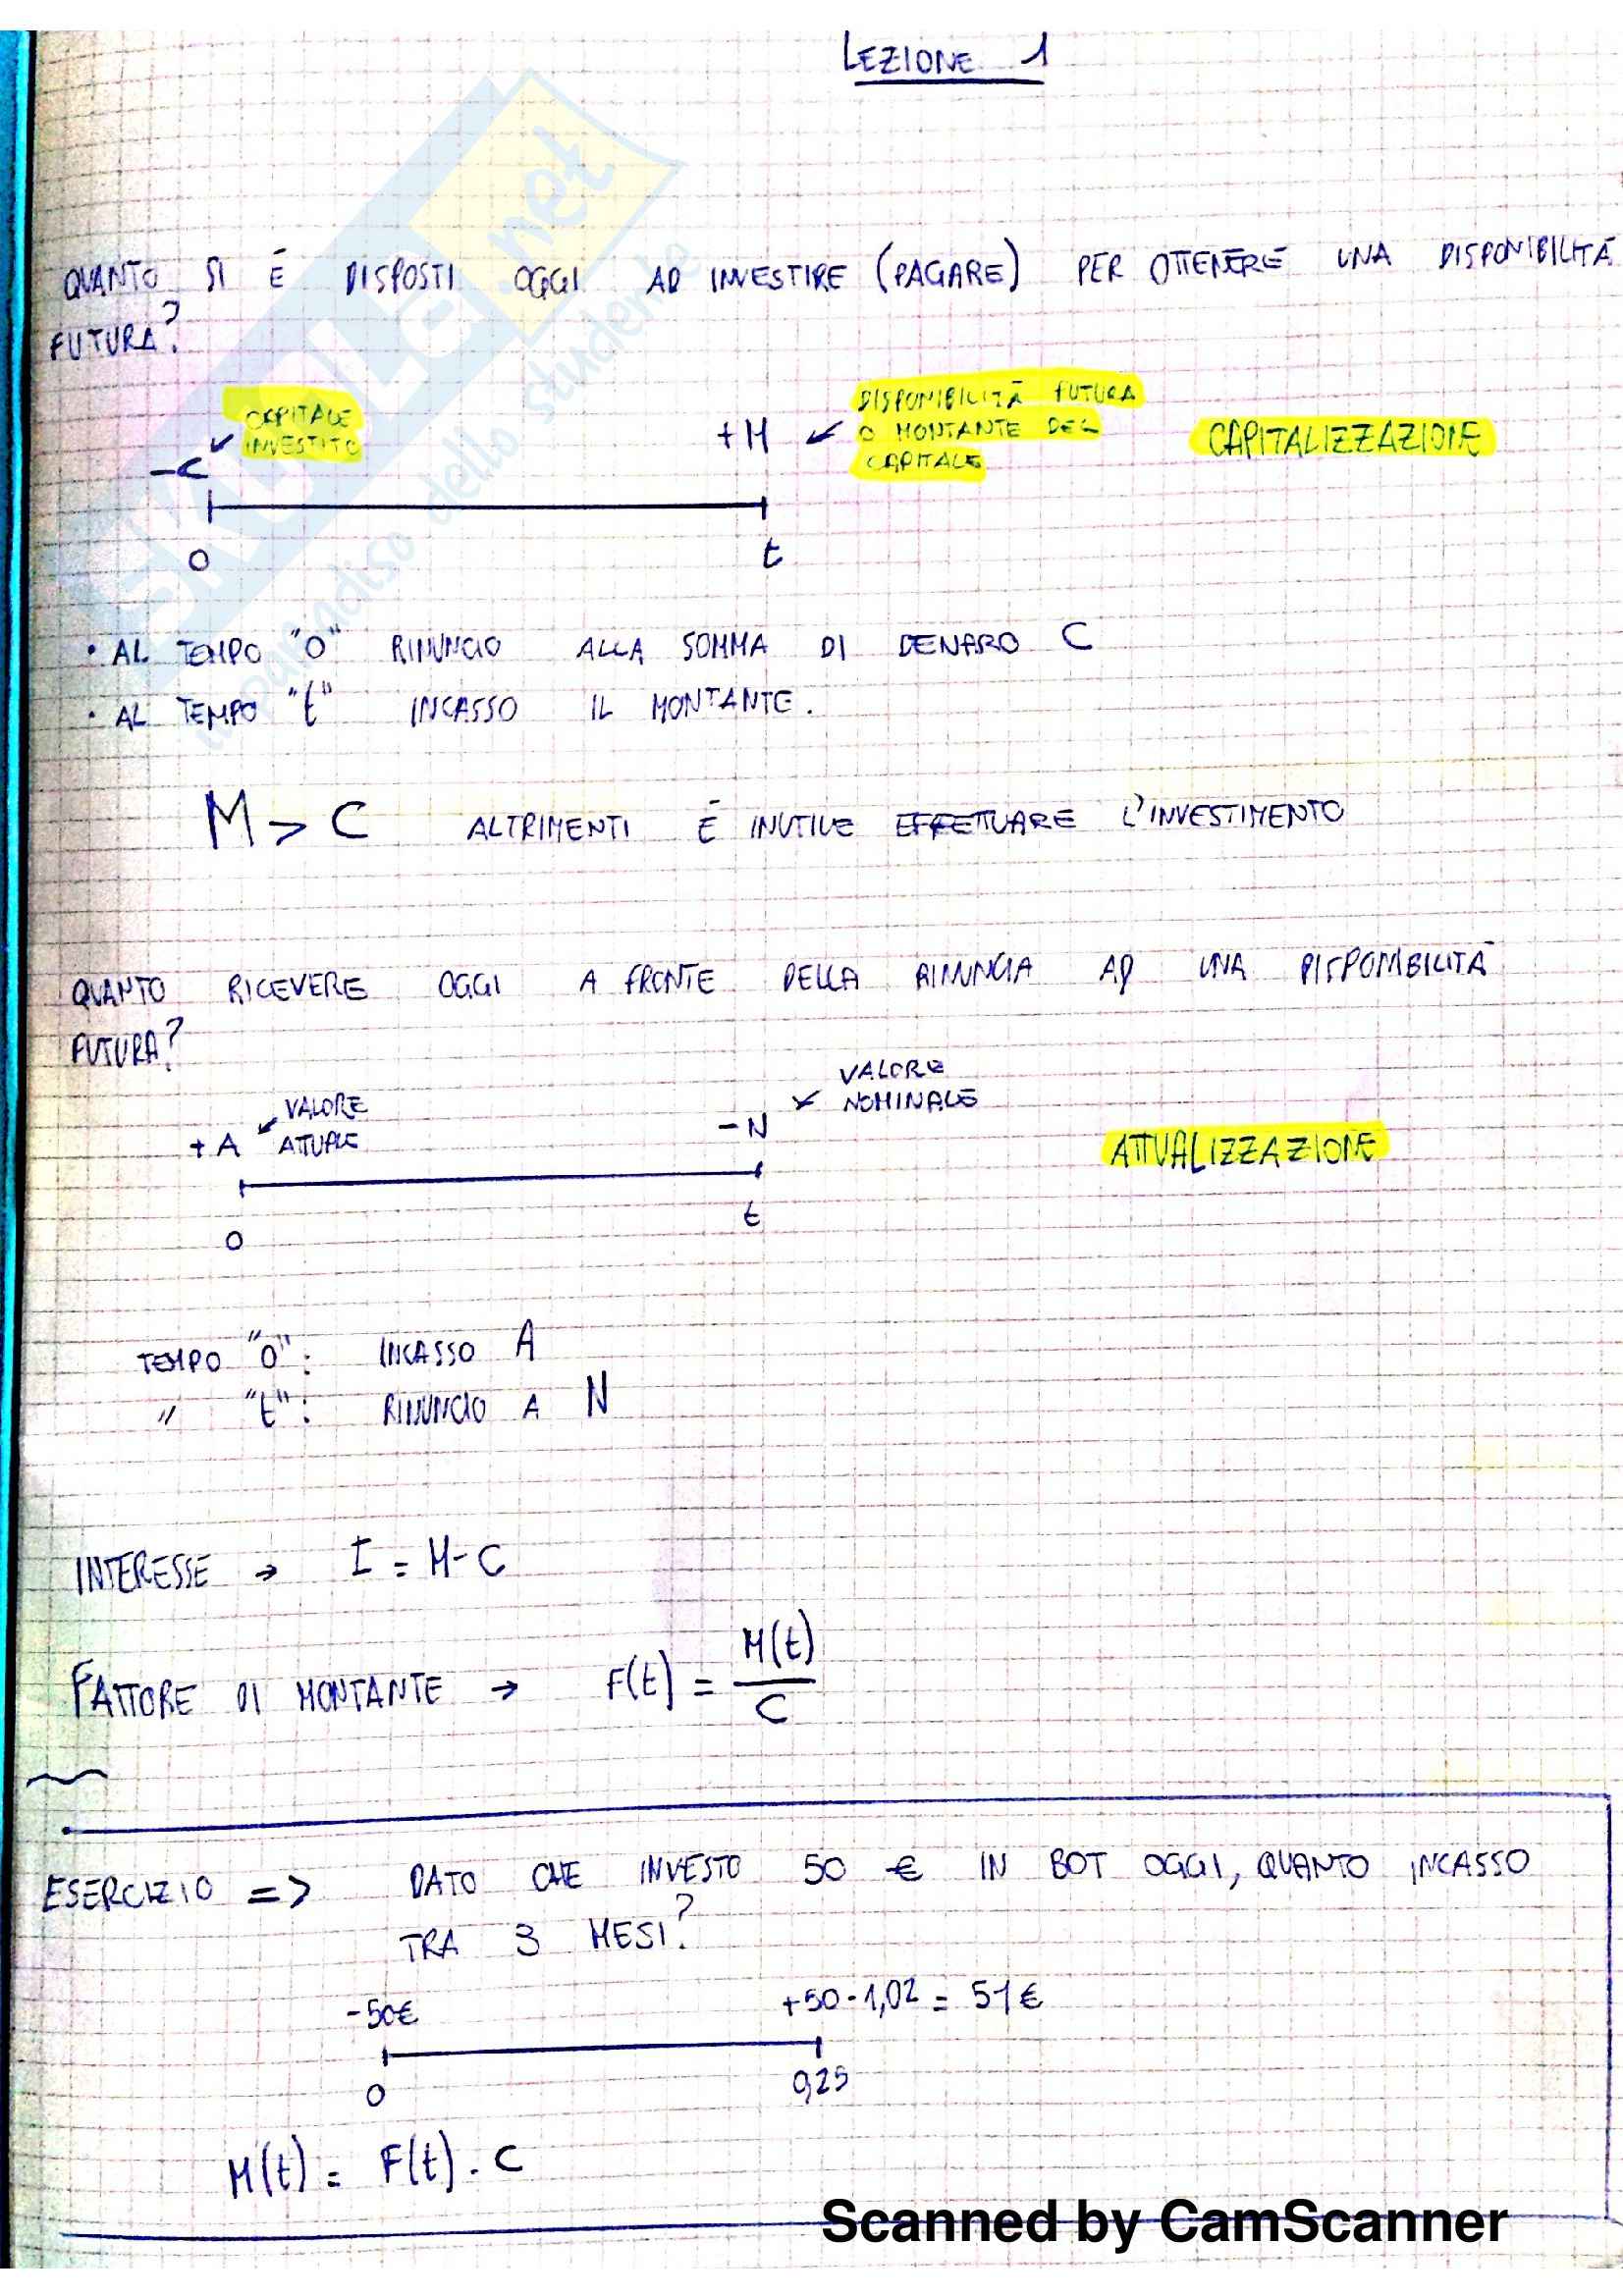 LEZIONE 1
QUANTO SI È DISPOSTI OGGI AD INVESTIRE (PAGARE) PER OTTENERE UNA DISPONIBILITÀ
FUTURA?
CAPITALE
INVESTITO
-C
+M
DISPONIBILITÀ FUTURA
O MONTANTE DEL
CAPITALE
CAPITALIZZAZIONE
0 t
• AL TEMPO "0" RINUNCIO ALLA SOMMA DI DENARO C
• AL TEMPO "t" INCASSO IL MONTANTE.
M > C ALTRIMENTI È INUTILE EFFETTUARE L'INVESTIMENTO
QUANTO RICEVERE OGGI A FRONTE DELLA RINUNCIA AD UNA DISPONIBILITÀ
FUTURA?
+A
VALORE
ATTUALE
-N
VALORE
NOMINALE
ATTUALIZZAZIONE
0 t
TEMPO "0": INCASSO A
" "t": RINUNCIO A N
INTERESSE → I = M-C
FATTORE DI MONTANTE → F(t) = M(t)/C
ESERCIZIO => DATO CHE INVESTO 50 € IN BOT OGGI, QUANTO INCASSO
TRA 3 MESI?
-50€ +50·1,02 = 51€
0 0,25
M(t) = F(t) · C
Scanned by CamScanner
SKUOLA.net
dello studente